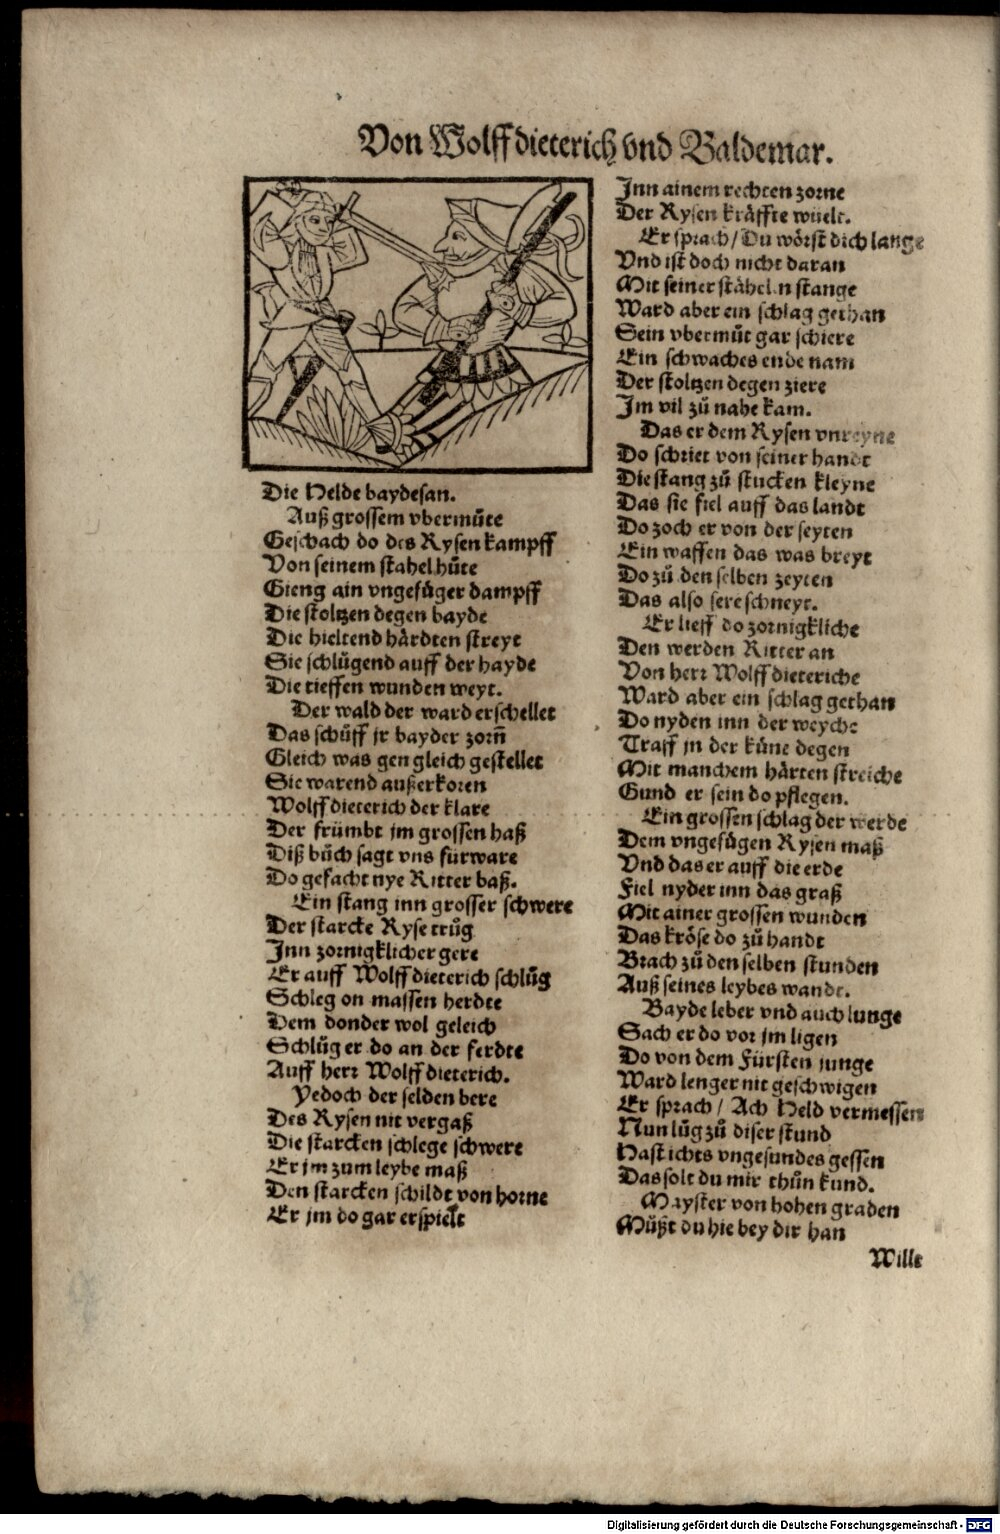 Von Wolffdieterich vnd Baldemar.
Die Helde baydesan.
Auß grossem vbermůte
Geschach do des Rysen kampff
Von seinem stahelhůte
Gieng ain vngefůger dampff
Die stoltzen degen bayde
Die hieltend hårdten streyt
Sie schlůgend auff der hayde
Die tieffen wunden weyt.
Der wald der ward erschellet
Das schůff jr bayder zorn̄
Gleich was gen gleich gestellet
Sie warend außerkoren
Wolffdieterich der klare
Der frümbt jm grossen haß
Diß bůch sagt vns fürware
Do gefacht nye Ritter baß.
Ein stang inn grosser schwere
Der starcke Ryse trůg
Inn zornigklicher gere
Er auff Wolffdieterich schlůg
Schleg on massen herdte
Dem donder wol geleich
Schlůg er do an der ferdte
Auff herr Wolffdieterich.
Yedoch der selden bere
Des Rysen nit vergaß
Die starcken schlege schwere
Er jm zum leybe maß
Den starcken schildt von horne
Er jm do gar erspielt
Inn ainem rechten zorne
Der Rysen kräffte wielt.
Er sprach / Du wörst dich lange
Vnd ist doch nicht daran
Mit seiner stäheln stange
Ward aber ein schlag gethan
Sein vbermůt gar schiere
Ein schwaches ende nam
Der stoltzen degen ziere
Im vil zů nahe kam.
Das er dem Rysen vnreyne
Do schriet von seiner handt
Die stang zů stucken kleyne
Das sie fiel auff das landt
Do zoch er von der seyten
Ein waffen das was breyt
Do zů den selben zeyten
Das also sere schneyt.
Er lieff do zornigkliche
Den werden Ritter an
Von herr Wolffdieteriche
Ward aber ein schlag gethan
Do nyden inn der weyche
Traff jn der küne degen
Mit manchem härten streiche
Gund er sein do pflegen.
Ein grossen schlag der werde
Dem vngefůgen Rysen maß
Vnd das er auff die erde
Fiel nyder inn das graß
Mit ainer grossen wunden
Das kröse do zů handt
Brach zů den selben stunden
Auß seines leybes wandt.
Bayde leber vnd auch lunge
Sach er do vor jm ligen
Do von dem Fürsten junge
Ward lenger nit geschwigen
Er sprach / Ach Held vermessen
Nun lůg zů diser stund
Hast ichts vngesundes gessen
Das solt du mir thůn kund.
Mayster von hohen graden
Můßt du hie bey dir han
Wilt
Digitalisierung gefördert durch die Deutsche Forschungsgemeinschaft - DFG